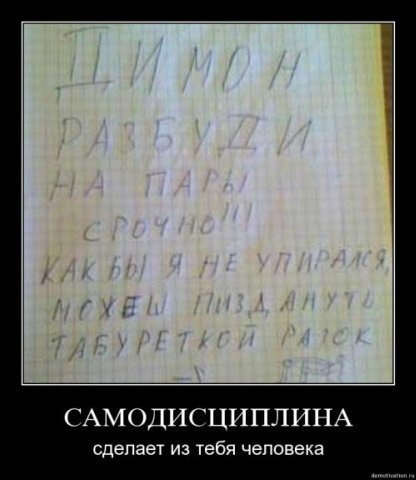 ДИМОН
РАЗБУДИ
НА ПАРЫ
СРОЧНО!!!
КАК БЫ Я НЕ УПИРАЛСЯ,
МОЖЕШ ПИЗДАНУТЬ
ТАБУРЕТКОЙ РАЗОК
САМОДИСЦИПЛИНА
сделает из тебя человека
demotivation.ru